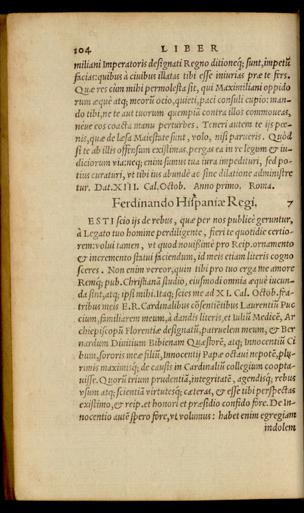 104 LIBER
miliani Imperatoris designati Regno ditioneq́; sunt, impetũ
facias: quibus à ciuibus illatas tibi esse iniurias præ te fers.
Quæ res cùm mihi permolesta sit, qui Maximiliani oppido
rum æquè atq; meorũ ocio, quieti, paci consuli cupio: man-
do tibi, ne te aut tuorum quemꝗ̃ contra illos commoueas,
néue eos coacta manu perturbes. Teneri autem te ijs pœ-
nis, quæ de læsa Maiestate sunt, volo, nisi parueris. Quòd
si te ab illis offensum existimas, pergas ea in re legum & iu-
diciorum via: neq; enim sumus tua iura impedituri, sed po-
tius curaturi, vt tibi ius abundè ac sine dilatione administre
tur. Dat. XIII. Cal. Octob. Anno primo. Roma.
Ferdinando Hispaniæ Regi, 7
ETSI scio ijs de rebus, quæ per nos publicè geruntur,
à Legato tuo homine perdiligente, fieri te quotidie certio-
rem: volui tamen, vt quod nouißimè pro Reip. ornamento
& incremento statui faciendum, id meis etiam literis cogno
sceres. Non enim vereor, quin tibi pro tuo erga me amore
Remq́; pub. Christianã studio, eiusmodi omnia æquè iucun-
da sint, atq; ipsi mihi. Itaq; scies me ad XI. Cal. Octob. fra-
tribus meis E.R. Cardinalibus cõsentiẽtibus Laurentiũ Puc
cium, familiarem meum, à dandis literis, et Iuliũ Medicẽ, Ar
chiepiscopũ Florentiæ designatũ, patruelem meum, & Ber
nardum Diuitium Bibienam Quæstorẽ, atq; Innocentiũ Ci
bum, sororis meæ filiũ, Innocentij Papæ octaui nepotẽ, plu-
rimis maximisq́; de causis in Cardinaliũ collegium coopta-
uisse. Quorũ trium prudentiã, integritatẽ, agendisq́; rebus
vsum atq; scientiã virtutesq́; cæteras, & esse tibi perspectas
existimo, & reip. et honori et præsidio confido fore. De In-
nocentio autẽ spero fore, vt volumus: habet enim egregiam
indolem